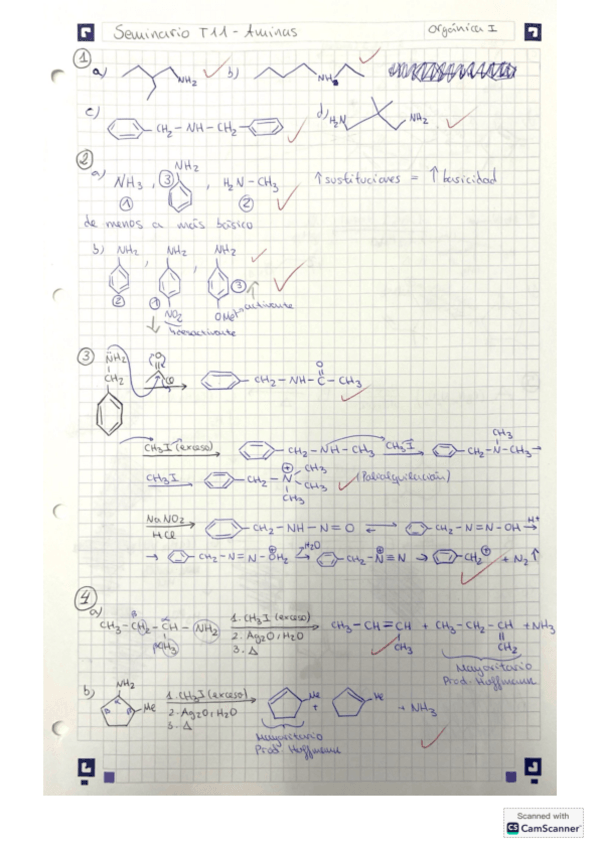 Seminario T11 - Aminas
Orgánica I
1
a) NH2 b) NH
c) CH2 - NH - CH2 d) H2N NH2
2
a) NH3, 3 NH2, H2N - CH3 ↑ sustituciones = ↑ basicidad
1 2
de menos a más básico
b) NH2, NH2, NH2
2 1 3
NO2 OMe activante
desactivante
3 NH2 O Cl CH2 - NH - C - CH3
CH2 O
CH3I (exceso) CH2 - NH - CH3 CH3I CH2 - N - CH3
CH3
CH3I CH2 - N CH3 CH3 CH3 (Polialquilación)
NaNO2 CH2 - NH - N = O ⇌ CH2 - N = N - OH H+
HCl
→ CH2 - N = N - OH2 -H2O CH2 - N ≡ N → CH2 + N2 ↑
4
a) CH3 - CH2 - CH - NH2 1. CH3I (exceso) CH3 - CH = CH + CH3 - CH2 - CH + NH3
β α βCH3 2. Ag2O, H2O CH3 CH2
3. Δ
Mayoritario
Prod. Hoffmann
b) NH2 1. CH3I (exceso) Me + Me + NH3
Me 2. Ag2O, H2O
3. Δ
Mayoritario
Prod. Hoffmann
Scanned with
CS CamScanner